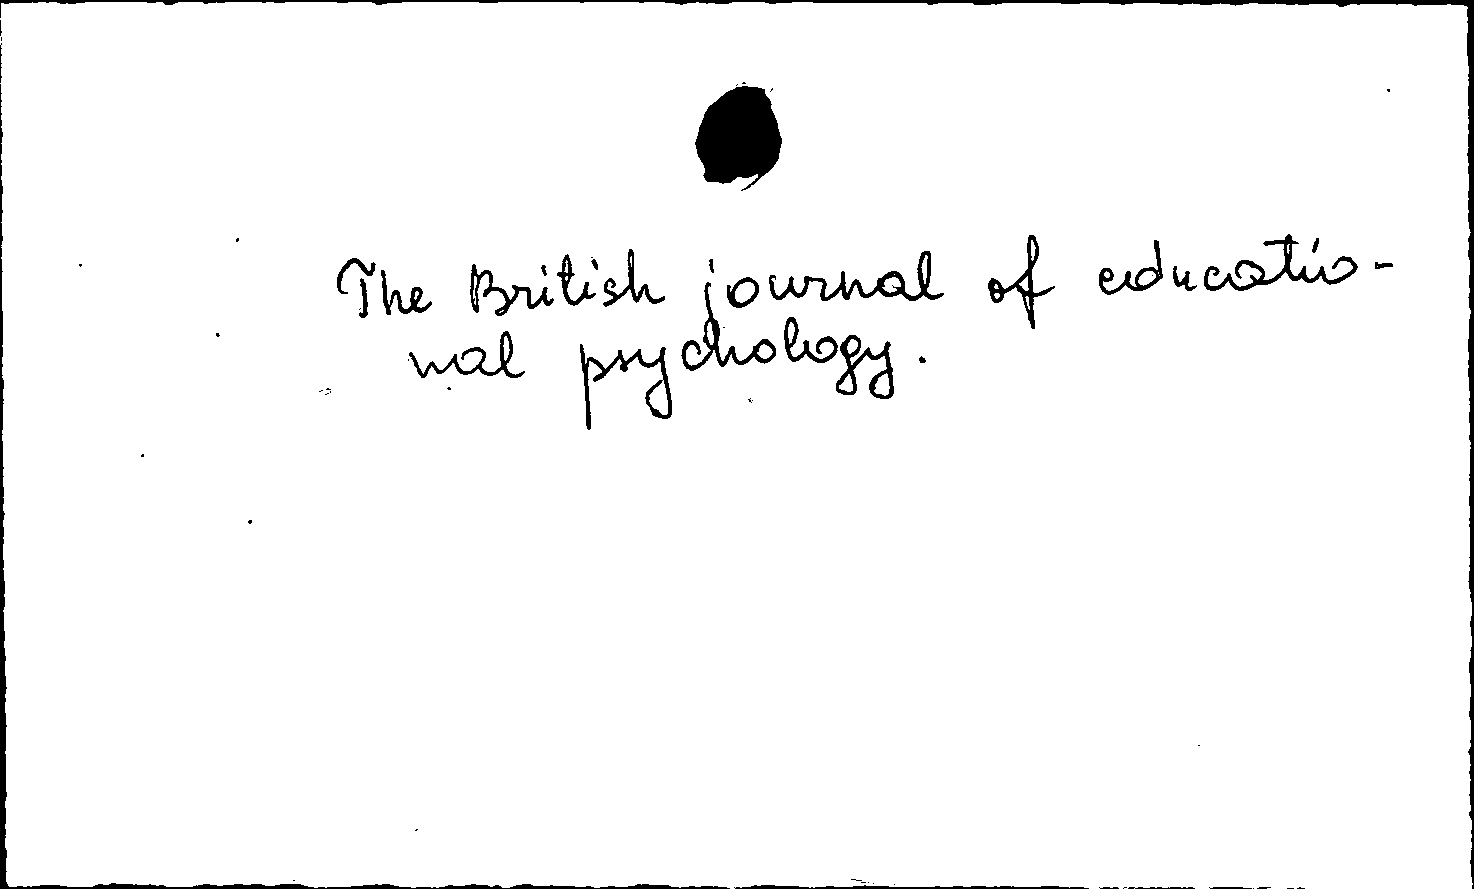 The British journal of educatio-
nal psychology.